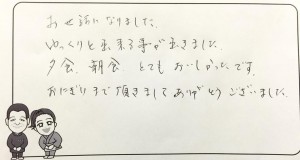 お世話になりました。
ゆっくりと出来る事が出きました。
夕食、朝食 とてもおいしかったです。
おにぎりまで頂きましてありがとうございました。